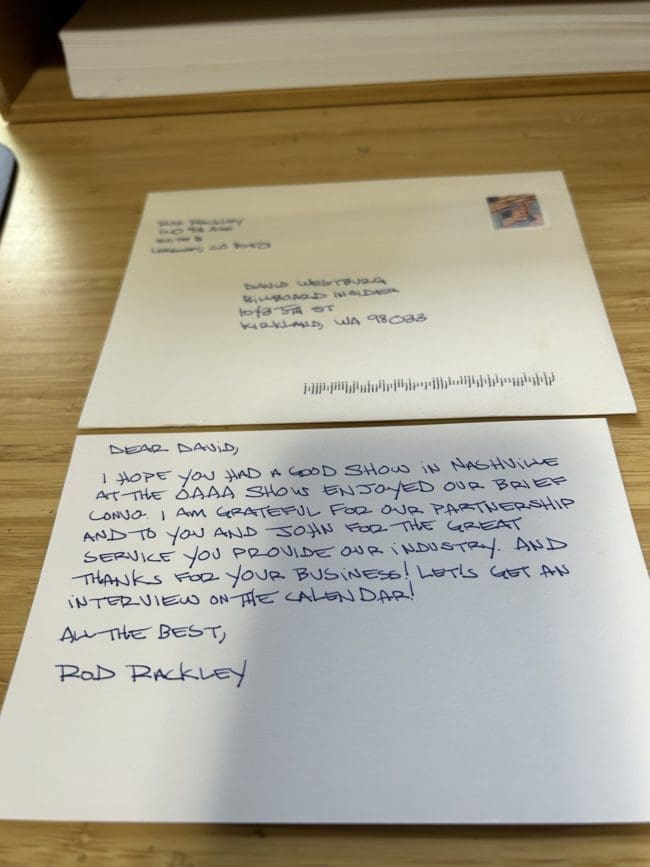 ROD RACKLEY
DAVID WESTBURG
BILLBOARD INSIDER
5TH ST
KIRKLAND, WA 98033
DEAR DAVID,
I HOPE YOU HAD A GOOD SHOW IN NASHVILLE
AT THE OAAA SHOW ENJOYED OUR BRIEF
CONVO. I AM GRATEFUL FOR OUR PARTNERSHIP
AND TO YOU AND JOHN FOR THE GREAT
SERVICE YOU PROVIDE OUR INDUSTRY. AND
THANKS FOR YOUR BUSINESS! LET'S GET AN
INTERVIEW ON THE CALENDAR!
ALL THE BEST,
ROD RACKLEY